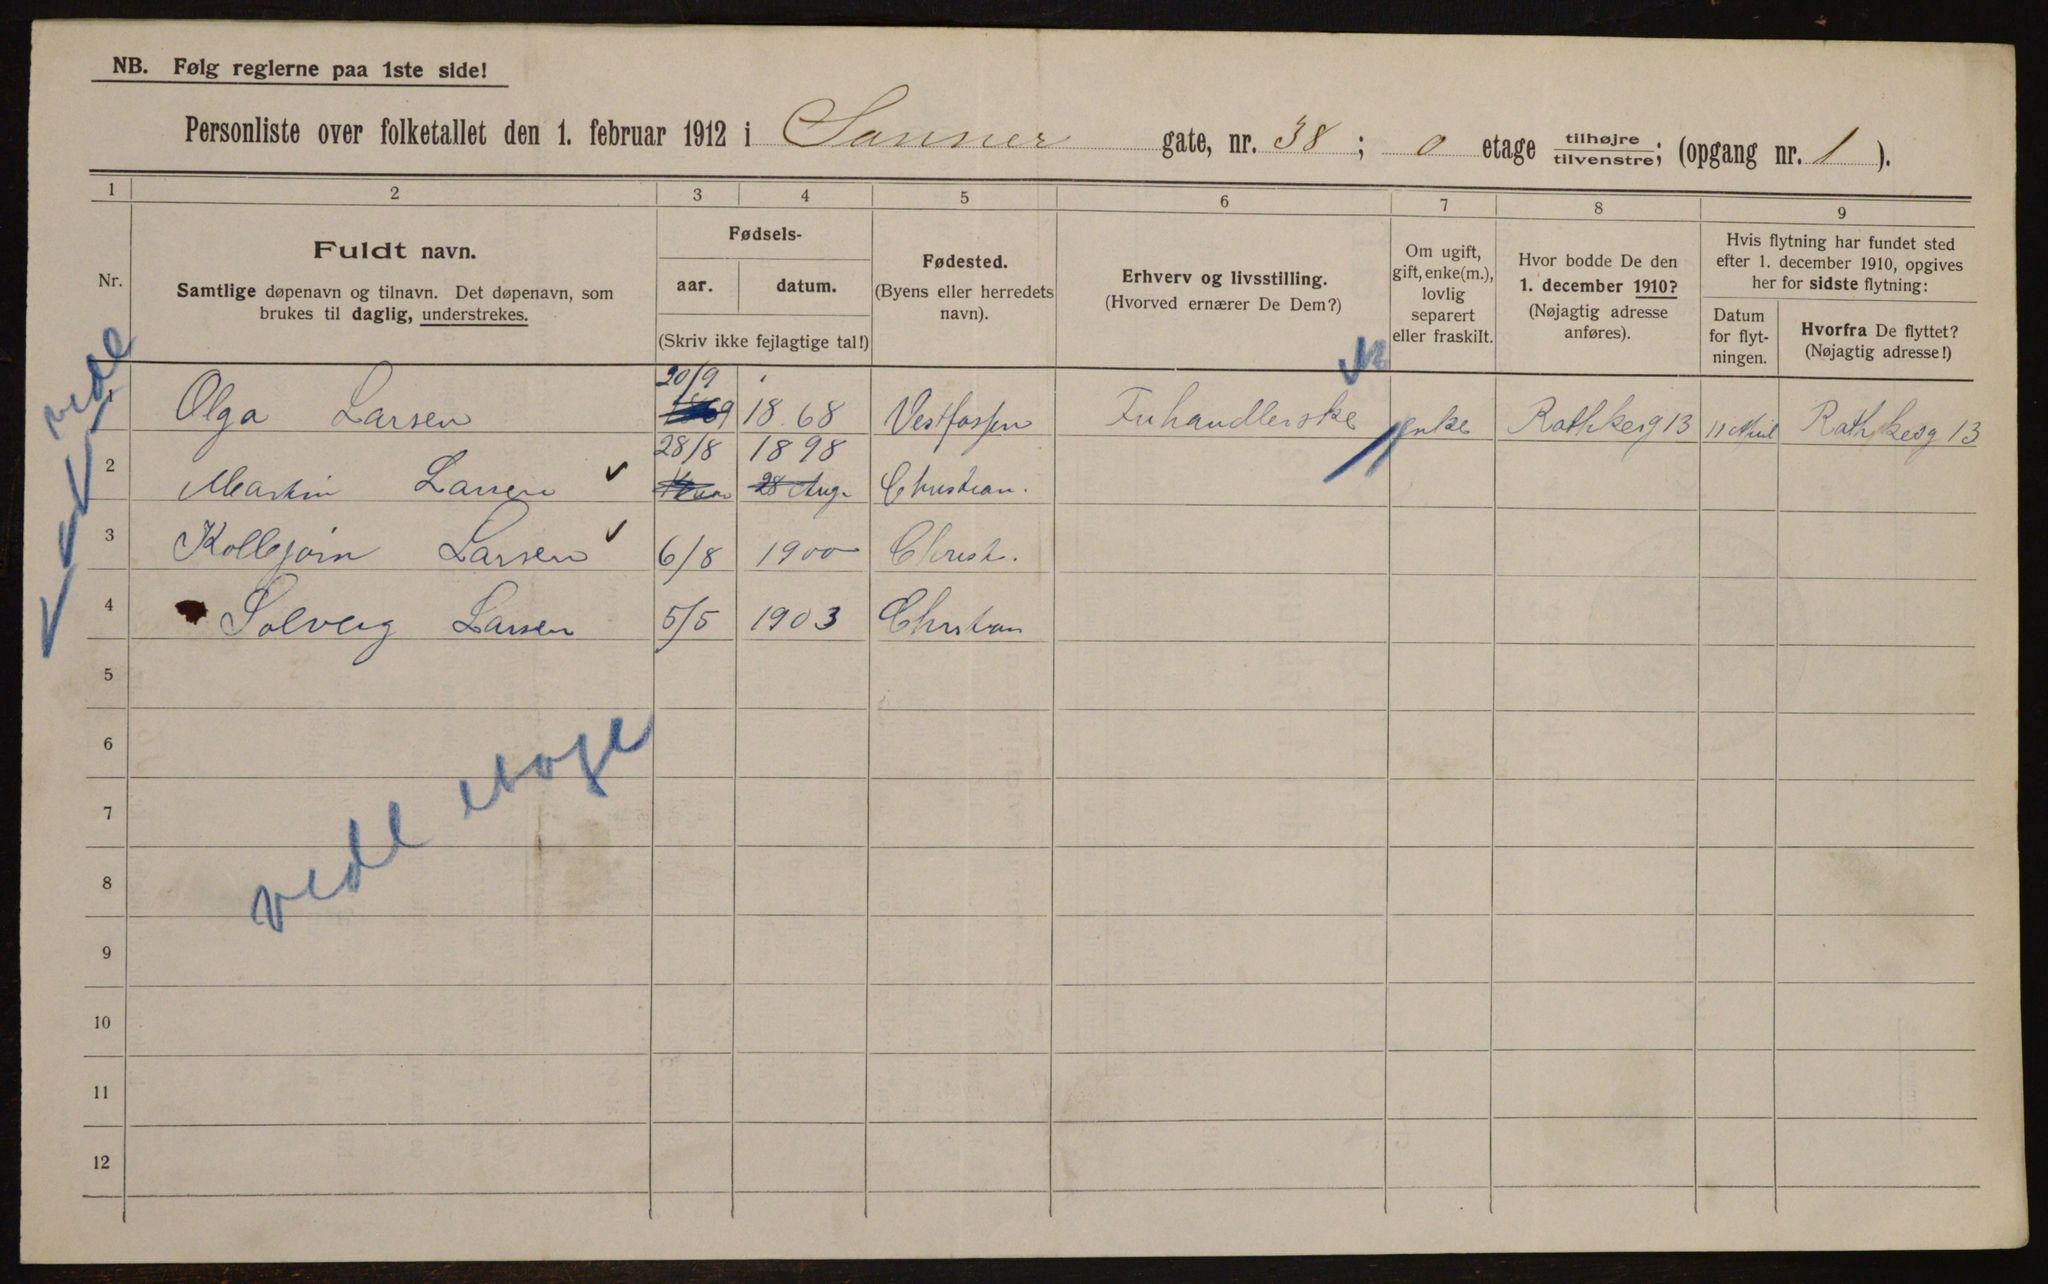 NB. Følg reglerne paa 1ste side!
Personliste over folketallet den 1. februar 1912 i Sanner gate, nr. 38; 0 etage tilhøjre/tilvenstre; (opgang nr. 1).
1 2 3 4 5 6 7 8 9
Nr.
Fuldt navn.
Samtlige døpenavn og tilnavn. Det døpenavn, som
brukes til daglig, understrekes.
Fødsels-
aar. datum.
(Skriv ikke fejlagtige tal!)
Fødested.
(Byens eller herredets
navn).
Erhverv og livsstilling.
(Hvorved ernærer De Dem?)
Om ugift,
gift, enke(m.),
lovlig
separert
eller fraskilt.
Hvor bodde De den
1. december 1910?
(Nøjagtig adresse
anføres).
Hvis flytning har fundet sted
efter 1. december 1910, opgives
her for sidste flytning:
Datum
for flyt-
ningen.
Hvorfra De flyttet?
(Nøjagtig adresse!)
vedl
1 Olga Larsen 20/9 1868 Vestfossen Fruhandlerske enke Rathkesg 13 11 April Rathkesg 13
2 Martin Larsen 28/8 1898 28 Aug. Christian.
3 Kolbjørn Larsen 6/8 1900 Christ.
4 Solveig Larsen 5/5 1903 Christian
5
6
7
vedl etage
8
9
10
11
12